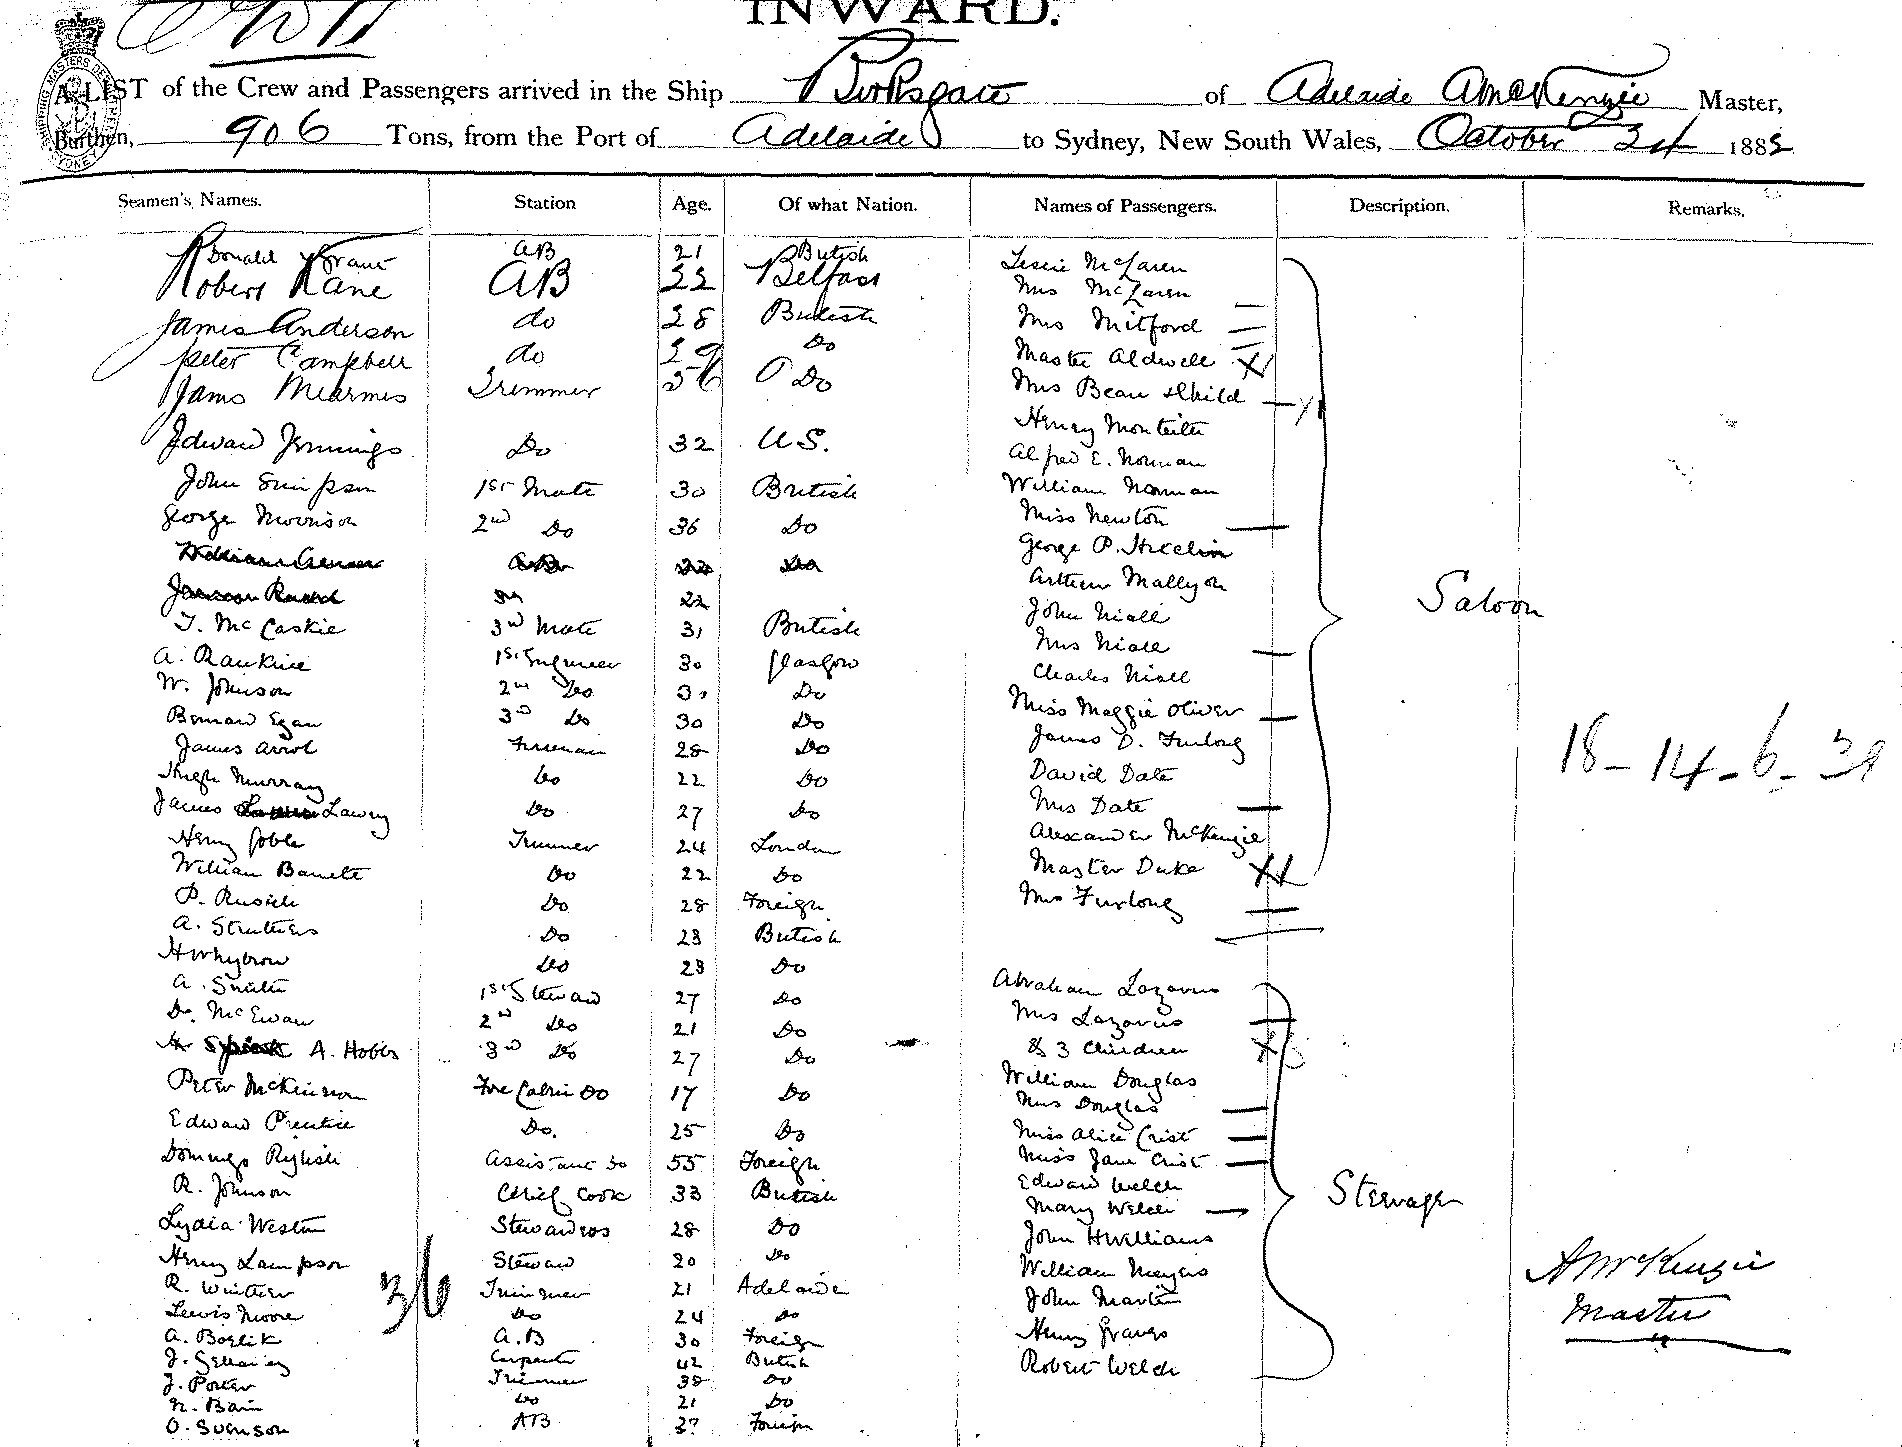 INWARD.
A LIST of the Crew and Passengers arrived in the Ship Birksgate of Adelaide A McKenzie Master,
Burthen, 906 Tons, from the Port of Adelaide to Sydney, New South Wales, October 188
Seamen's Names. Station Age. Of what Nation. Names of Passengers. Description. Remarks.
Donald Grant AB 21 British Leslie McLaren
Robert Kane AB 22 Belfast Mrs McLaren
James Anderson do 28 British Mrs Mitford
Peter Campbell do 29 Do Master Aldwell
James Mearmes Trimmer 36 Do Mrs Bean & Child
Henry Monteith
Edward Jennings Do 32 U.S. Alfred E. Norman
John Simpson 1st Mate 30 British William Norman
George Morrison 2nd Do 36 Do Miss Newton
George P.
22 Arthur Mallyon
Saloon
T. McCaskie 3rd Mate 31 British John Niall
A. Rankine 1st Engineer 30 Glasgow Mrs Niall
W. Johnson 2nd Do 31 Do Charles Niall
Bernard Egan 3rd Do 30 Do Miss Maggie Oliver
James Arrol Fireman 28 Do James D. Furlong
Hugh Murray Do 22 Do David Date
18-14-6-
James Lawry Do 27 Do Mrs Date
Henry Trimmer 24 London Alexander McKenzie
William Barrett Do 22 Do Master Duke
P. Do 28 Foreign Mrs Furlong
A. Struthers Do 23 British
H Whybrow Do 23 Do
A. Smith 1st Steward 27 Do Abraham Lazarus
D. McEwan 2nd Do 21 Do Mrs Lazarus
A. Hobbs 3rd Do 27 Do & 3 Children
Peter McKinnon Fore Cabin Do 17 Do William Douglas
Mrs Douglas
Edward Prentice Do. 25 Do Miss Alice Crist
Domingo Assistant Do 55 Foreign Miss Jane Crist
R. Johnson Chief Cook 33 British Edward Welch
Steerage
Lydia Weston Stewardess 28 Do Mary Welch
John H Williams
Henry Lampson Steward 20 Do William Meyers
R. Winther Trimmer 21 Adelaide John Martin
36
A McKenzie
Lewis Moore Do 24 Do
Master
A. Boglik A.B 30 Foreign Henry Graves
J. Carpenter 42 British Robert Welch
J. Porter Trimmer 38 Do
N. Bain Do 21 Do
O. Svenson AB 37 Foreign